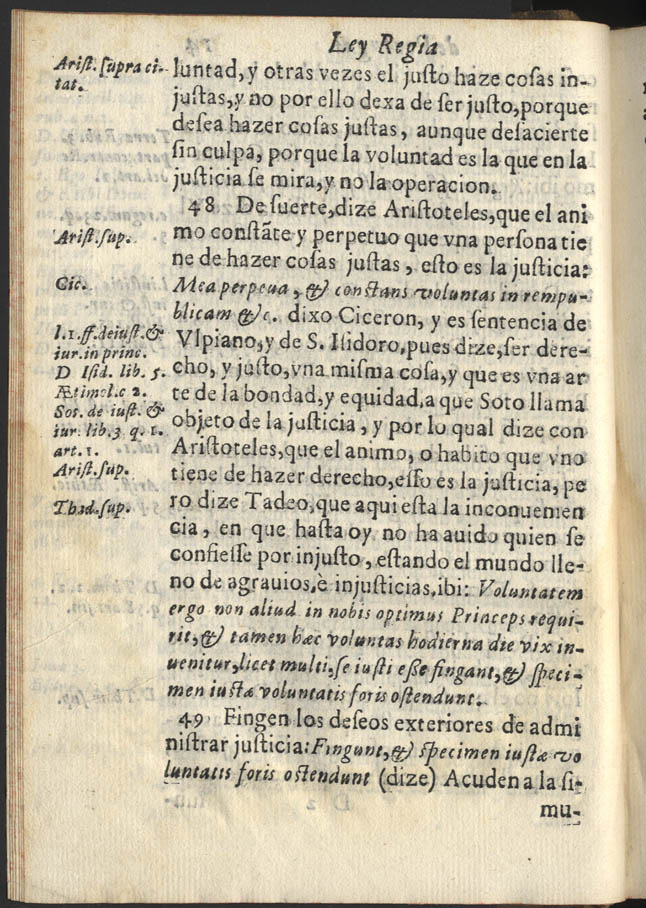 Ley Regia
Arist. supra ci-
tat.
luntad, y otras vezes el justo haze cosas in-
justas, y no por ello dexa de ser justo, porque
desea hazer cosas justas, aunque desacierte
sin culpa, porque la voluntad es la que en la
justicia se mira, y no la operacion.
48 De suerte, dize Aristoteles, que el ani
Arist. sup.
mo constãte y perpetuo que vna persona tie
ne de hazer cosas justas, esto es la justicia:
Cic.
Mea perpeua, & constans voluntas in rempu-
blicam &c. dixo Ciceron, y es sentencia de
l. 1. ff. de iust. &
iur. in princ.
Vlpiano, y de S. Isidoro, pues dize, ser dere-
D Isid. lib. 5.
cho, y justo, vna misma cosa, y que es vna ar
Ætimol. c 2.
te de la bondad, y equidad, a que Soto llama
Sot. de iust. &
iur. lib. 3 q. 1.
objeto de la justicia, y por lo qual dize con
art. 1.
Aristoteles, que el animo, o habito que vno
Arist. sup.
tiene de hazer derecho, esso es la justicia, pe
Thad. sup.
ro dize Tadeo, que aqui esta la inconuemen
cia, en que hasta oy no ha auido quien se
confiesse por injusto, estando el mundo lle-
no de agrauios, è injusticias, ibi: Voluntatem
ergo non aliud in nobis optimus Princeps requi-
rit, & tamen hæc voluntas hodierna die vix in-
uenitur, licet multi, se iusti esse fingant, & speci-
men iustæ voluntatis foris ostendunt.
49 Fingen los deseos exteriores de admi
nistrar justicia: Fingunt, & specimen iustæ vo
luntatis foris ostendunt (dize) Acuden a la si-
mu-